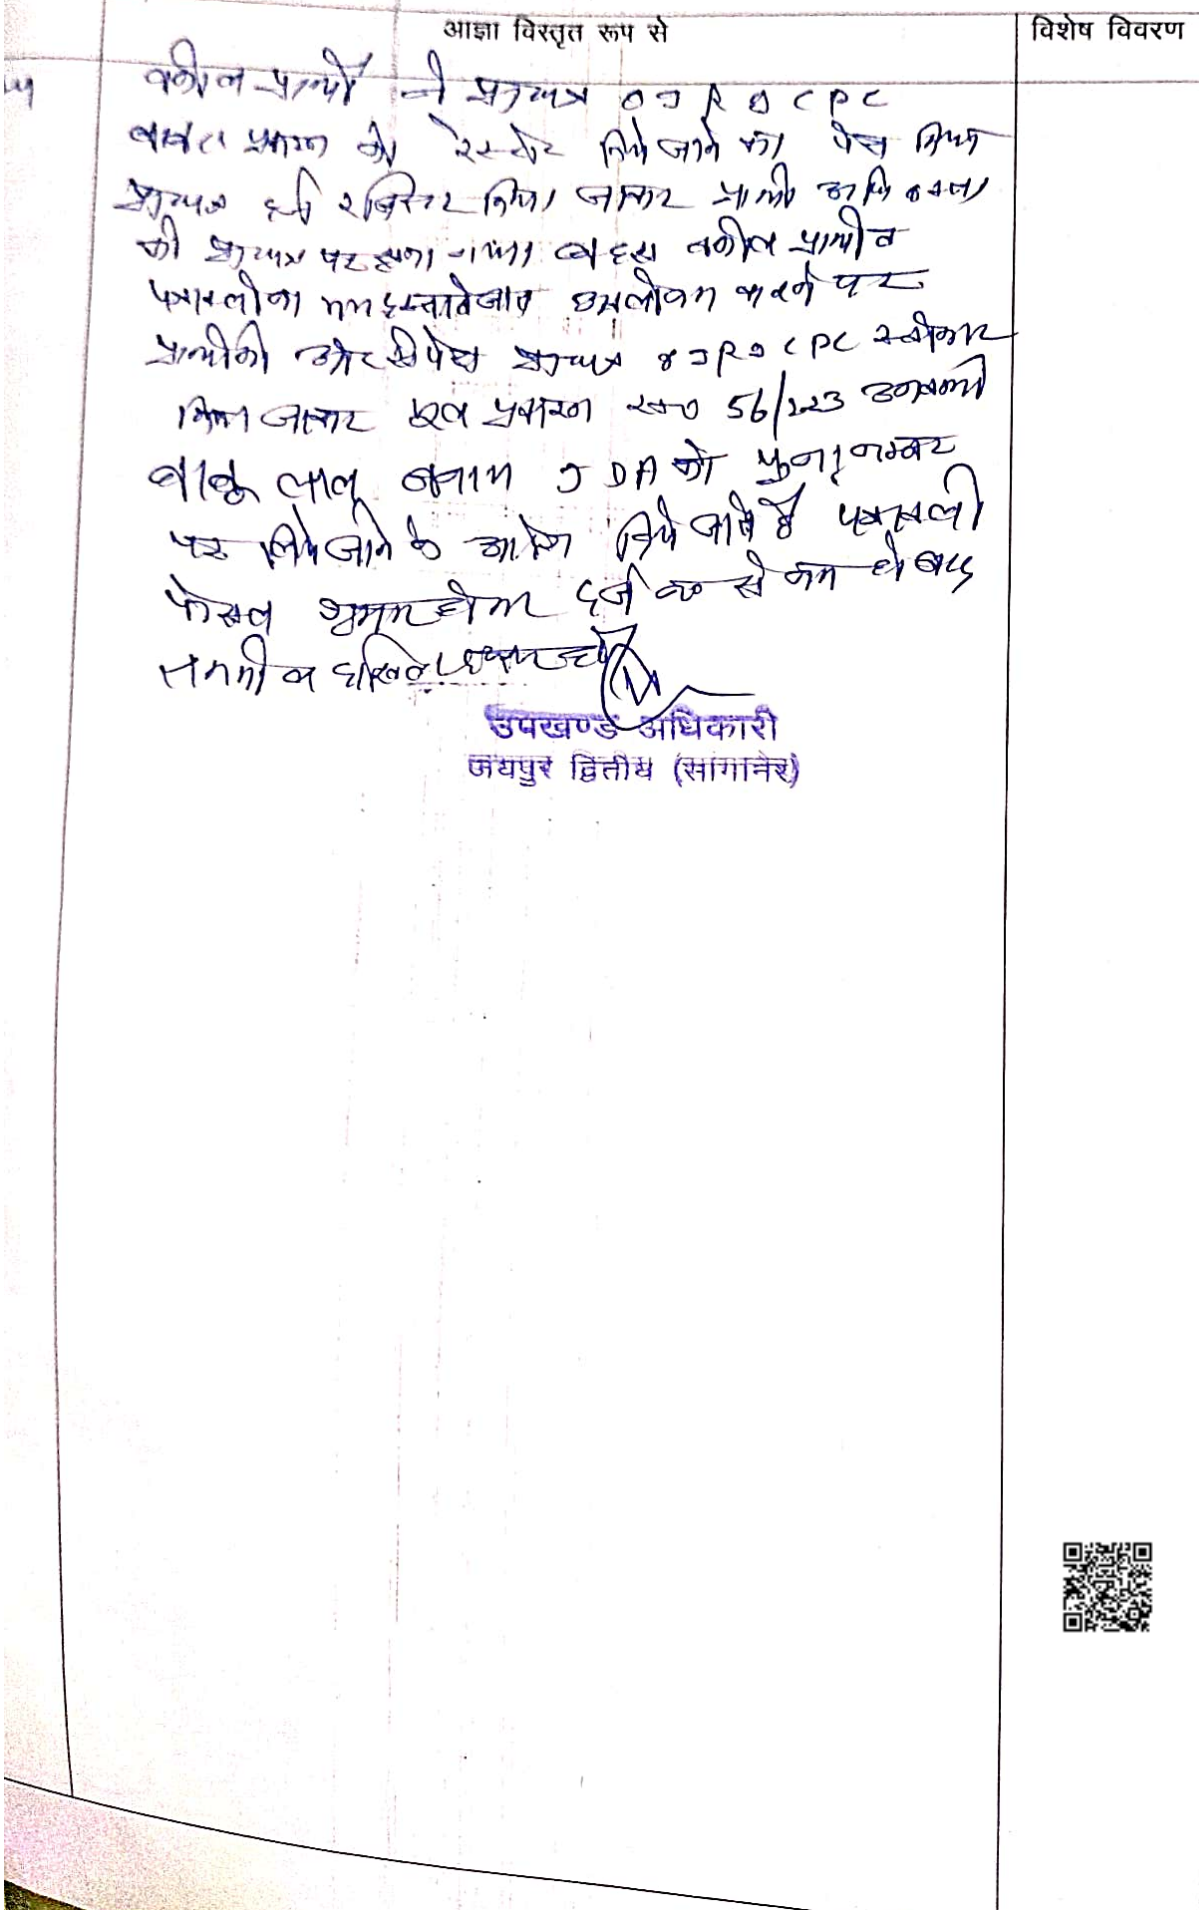 आज्ञा विस्तृत रूप से
विशेष विवरण
वकील प्रार्थी ने प्रा०पत्र O 9 R 9 CPC
बाबत प्रकरण को रेस्टोर किये जाने का पेश किया
प्रा०पत्र दर्ज रजिस्टर किया जाकर प्रार्थी अधिवक्ता
को प्रा०पत्र पर सुना गया बहस वकील प्रार्थी व
पत्रावली का मय दस्तावेजात अवलोकन करने पर
प्रार्थी की ओर से पेश प्रा०पत्र O 9 R 9 CPC स्वीकार
किया जाकर मूल प्रकरण 56/223
बाबू लाल बनाम JDA को पुनः नम्बर
पर लिये जाने के आदेश दिये जाते है पत्रावली
फैसल शुमार होकर दर्ज से कम हो बाद
व दाखिल दफ्तर हो
उपखण्ड अधिकारी
जयपुर द्वितीय (सांगानेर)